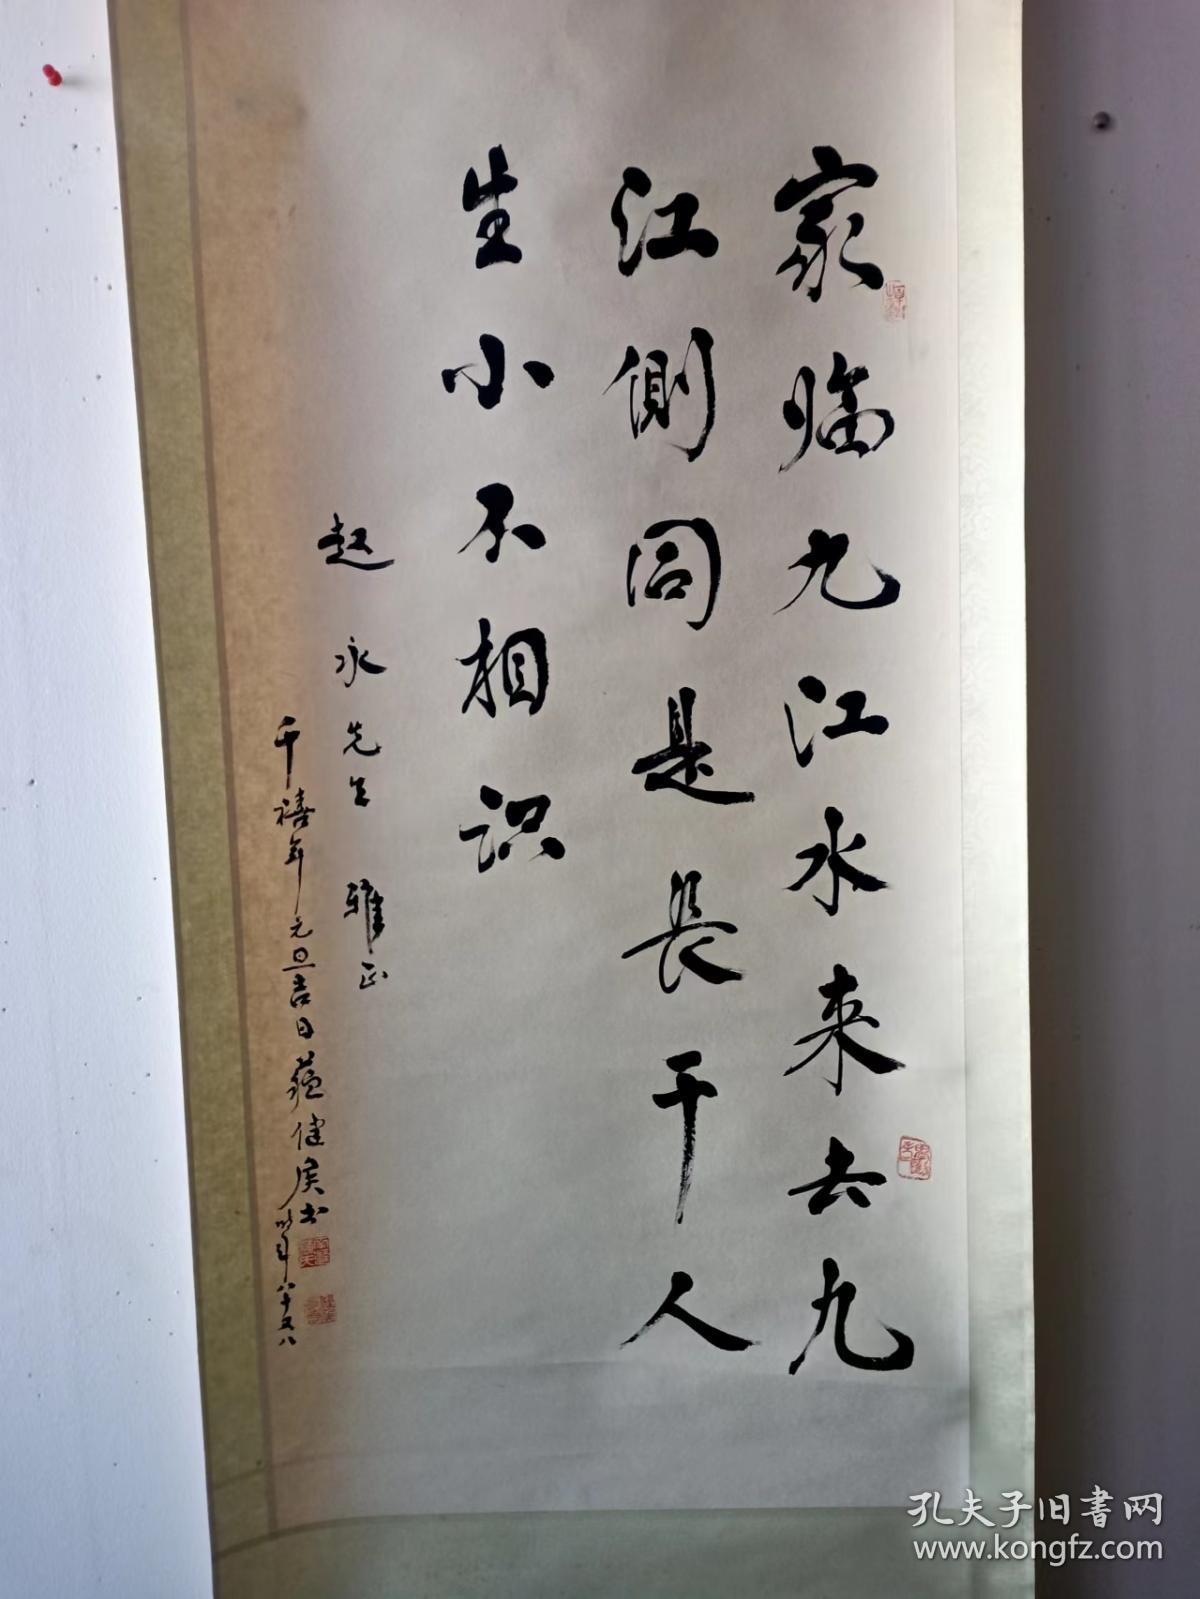 家临九江水来去九
江侧同是长干人
生小不相识
赵永先生 雅正
千禧年元旦吉日苏健侯书
时年八十又八
孔夫子旧书网
www.kongfz.com